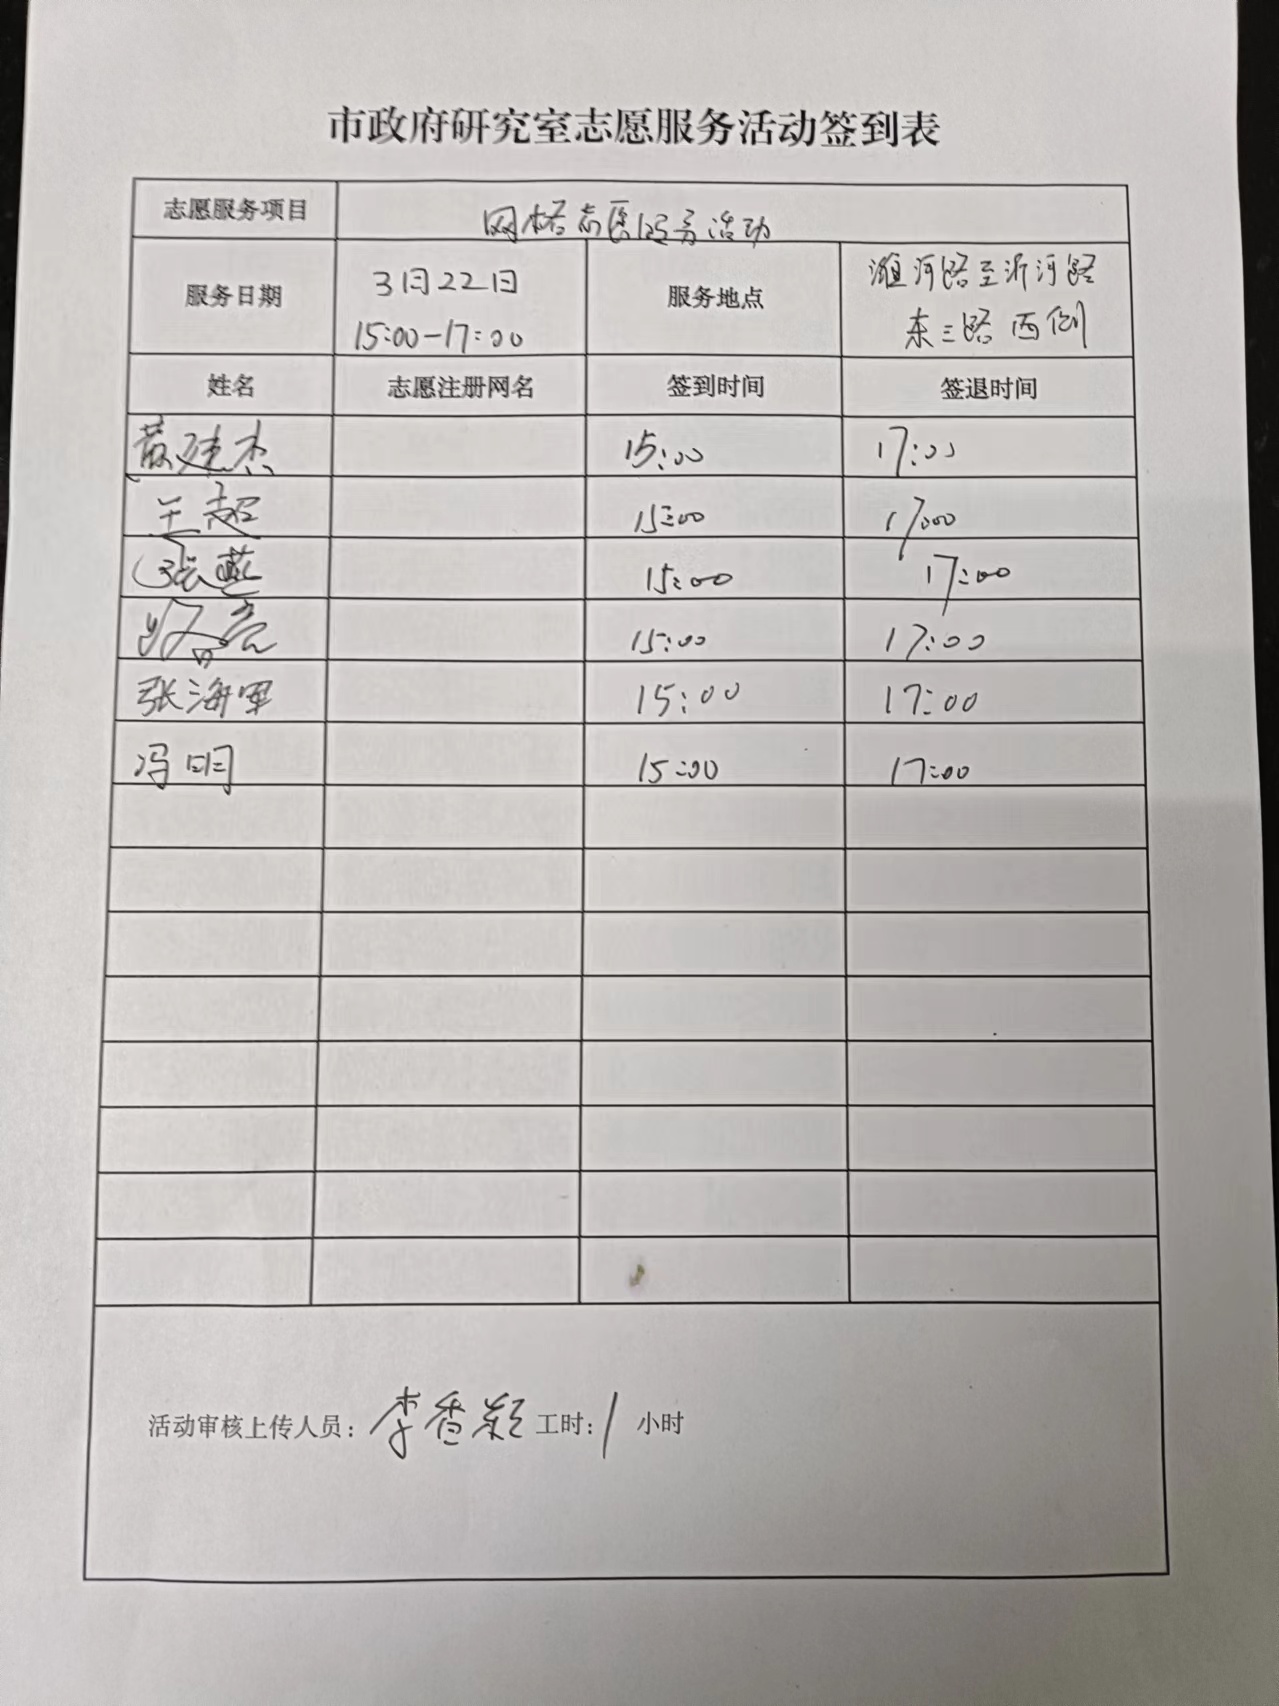 市政府研究室志愿服务活动签到表
志愿服务项目 网格志愿服务活动
服务日期 3月22日 15:00-17:00 服务地点 潍河路至沂河路 东三路西侧
姓名 志愿注册网名 签到时间 签退时间
黄建杰 15:00 17:00
王超 15:00 17:00
张燕 15:00 17:00
15:00 17:00
张海军 15:00 17:00
冯明 15:00 17:00
活动审核上传人员: 李香颖 工时: 1 小时